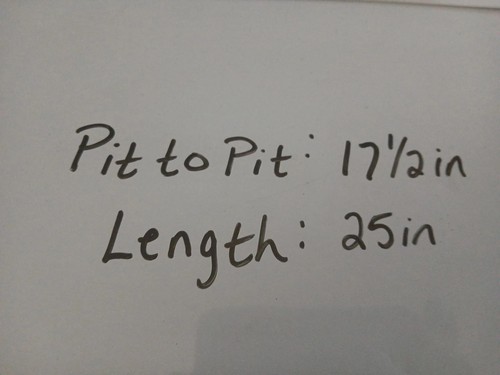 Pit to Pit: 17 1/2 in
Length: 25in